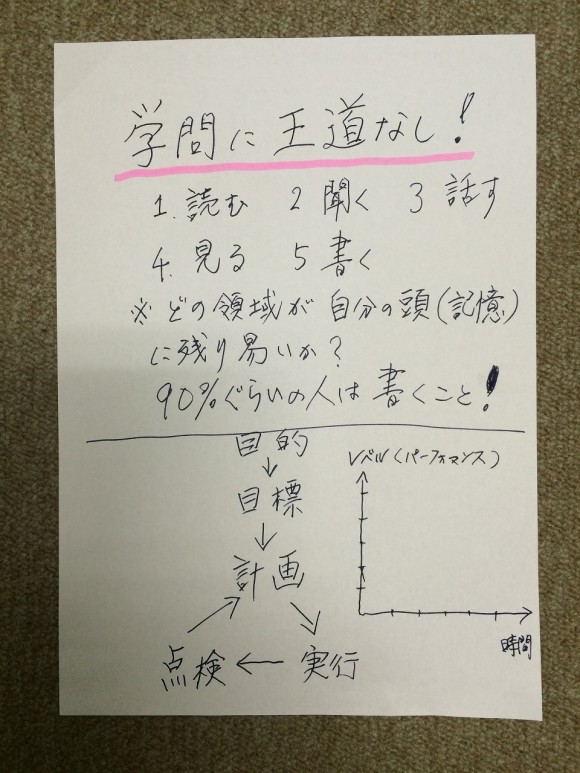 学問に王道なし!
1.読む 2 聞く 3 話す
4.見る 5 書く
※どの領域が自分の頭(記憶)
に残り易いか?
90%ぐらいの人は書くこと!
目的
↓
目標
↓
計画
点検 ← 実行
レベル(パーフォマンス)
時間